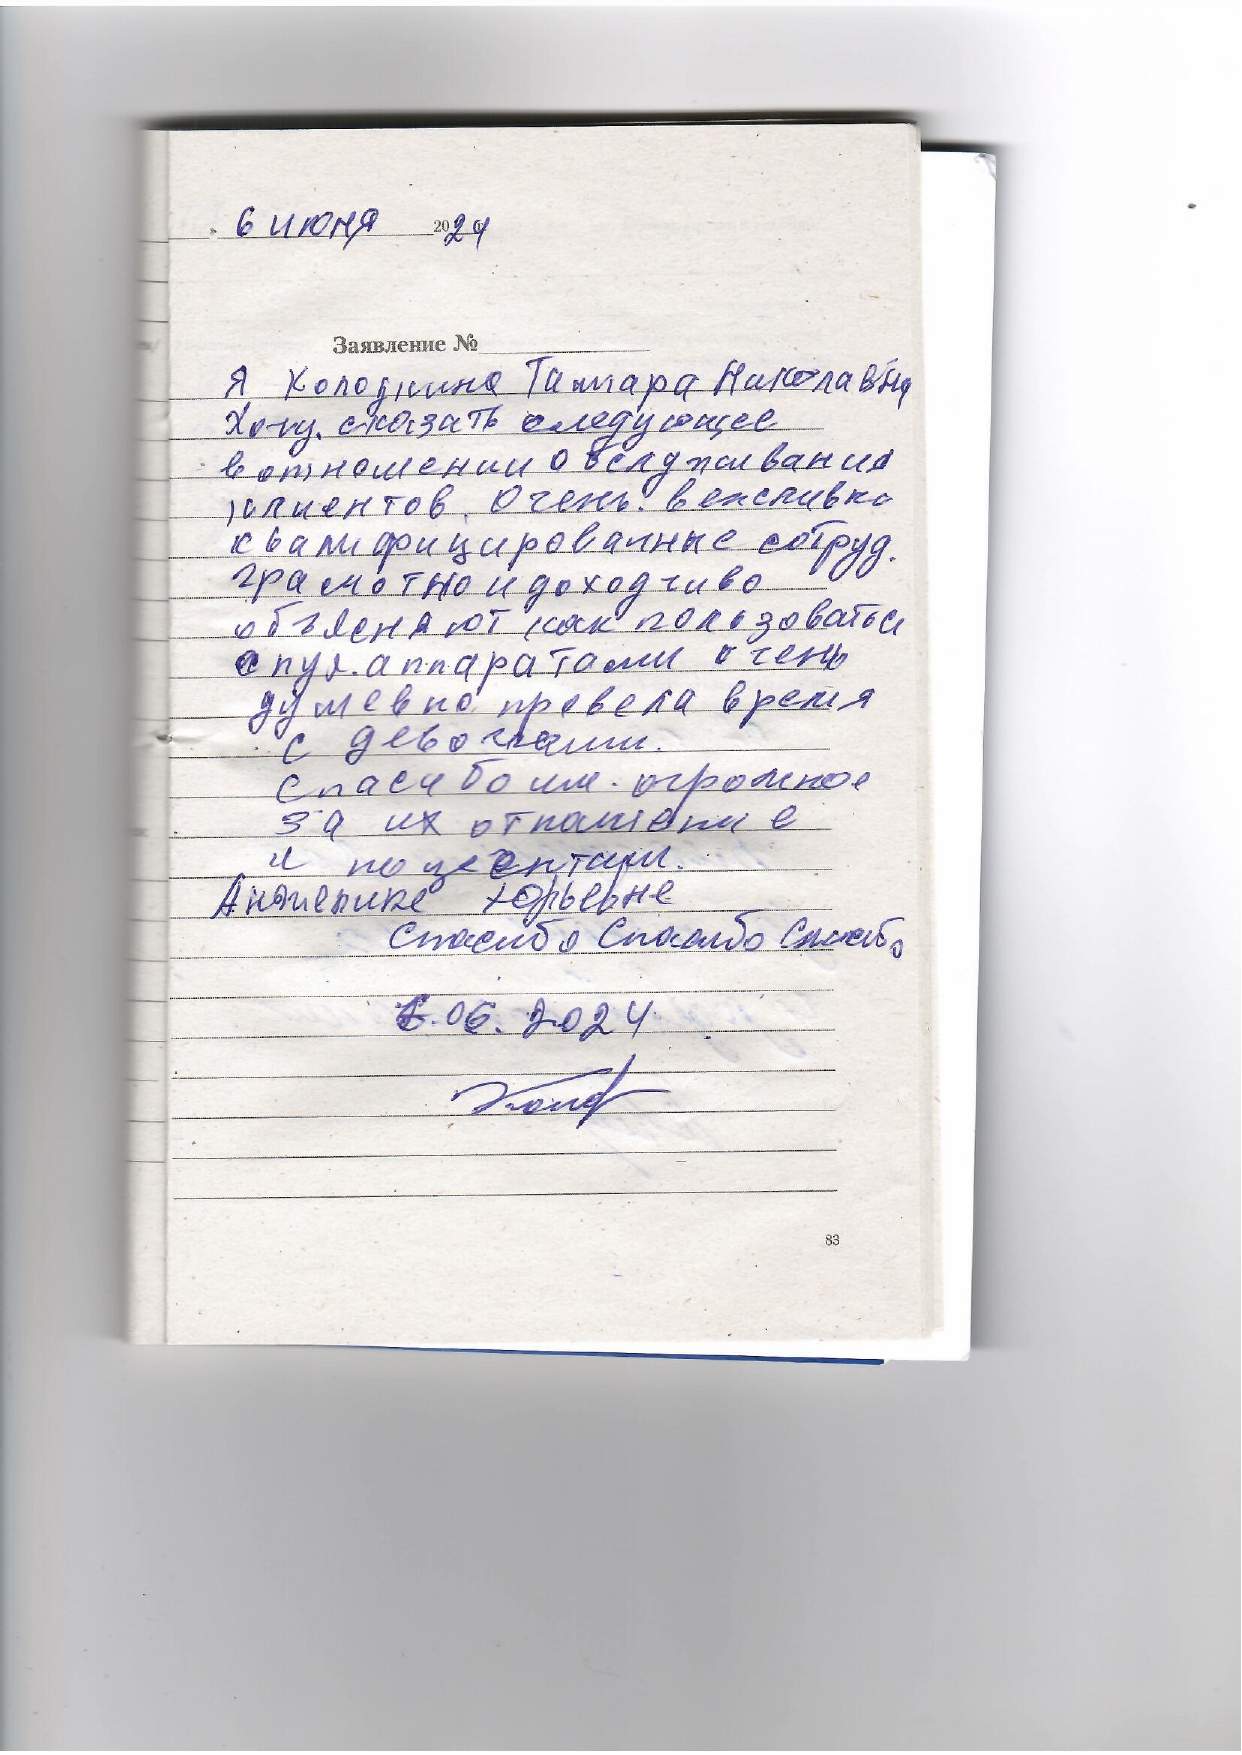 6 июня 2024
Заявление №
Я Тамара Николавна
Хочу сказать следующее
в отношении обслуживания
клиентов. Очень вежливко
квалифицированные сотруд.
грамотно и доходчиво
объясняют как пользоваться
с аппаратами очень
душевно провела время
с девочками.
Спасибо им огромное
за их отношение
и поцеентам.
Анжелике Юрьевне
Спасибо Спасибо Спасибо
6.06.2024
83